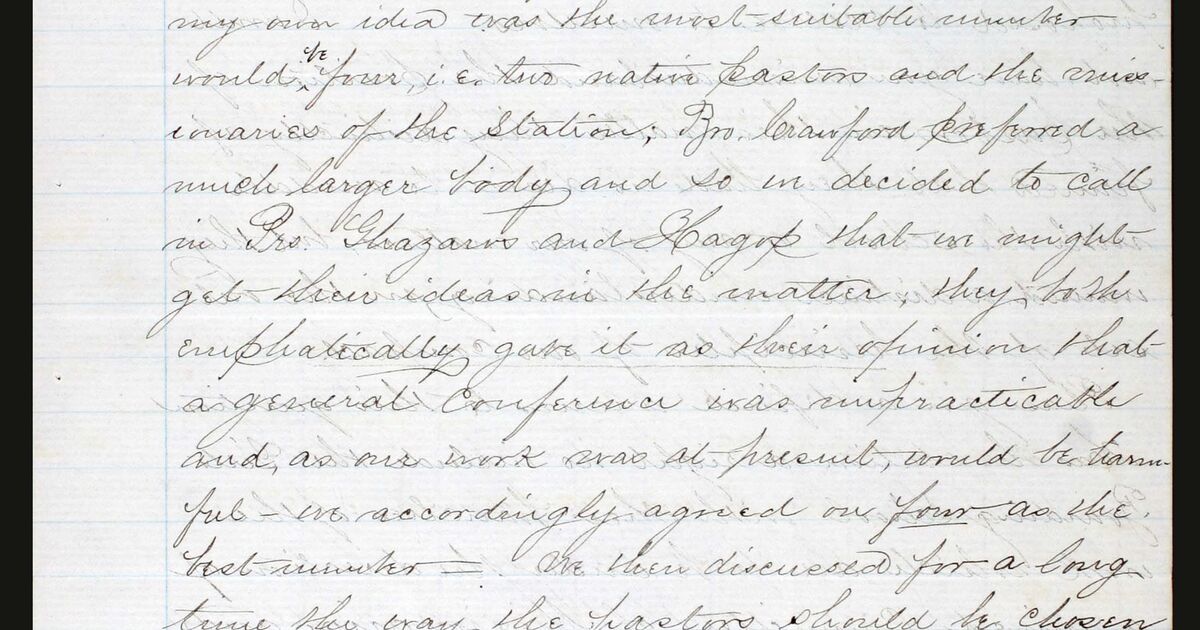 my own idea was the most suitable number
would, be four, i.e. two native pastors and the miss-
ionaries of the Station; Bro. Crawford preferred a
much larger body and so we decided to call
in Brs. Ghazaros and Hagop that we might
get their ideas in the matter; they both
emphatically gave it as their opinion that
a general Conference was impracticable
and, as our work was at present, would be harm-
ful - we accordingly agreed on four as the
best number =. We then discussed for a long
time the way the pastors should be chosen